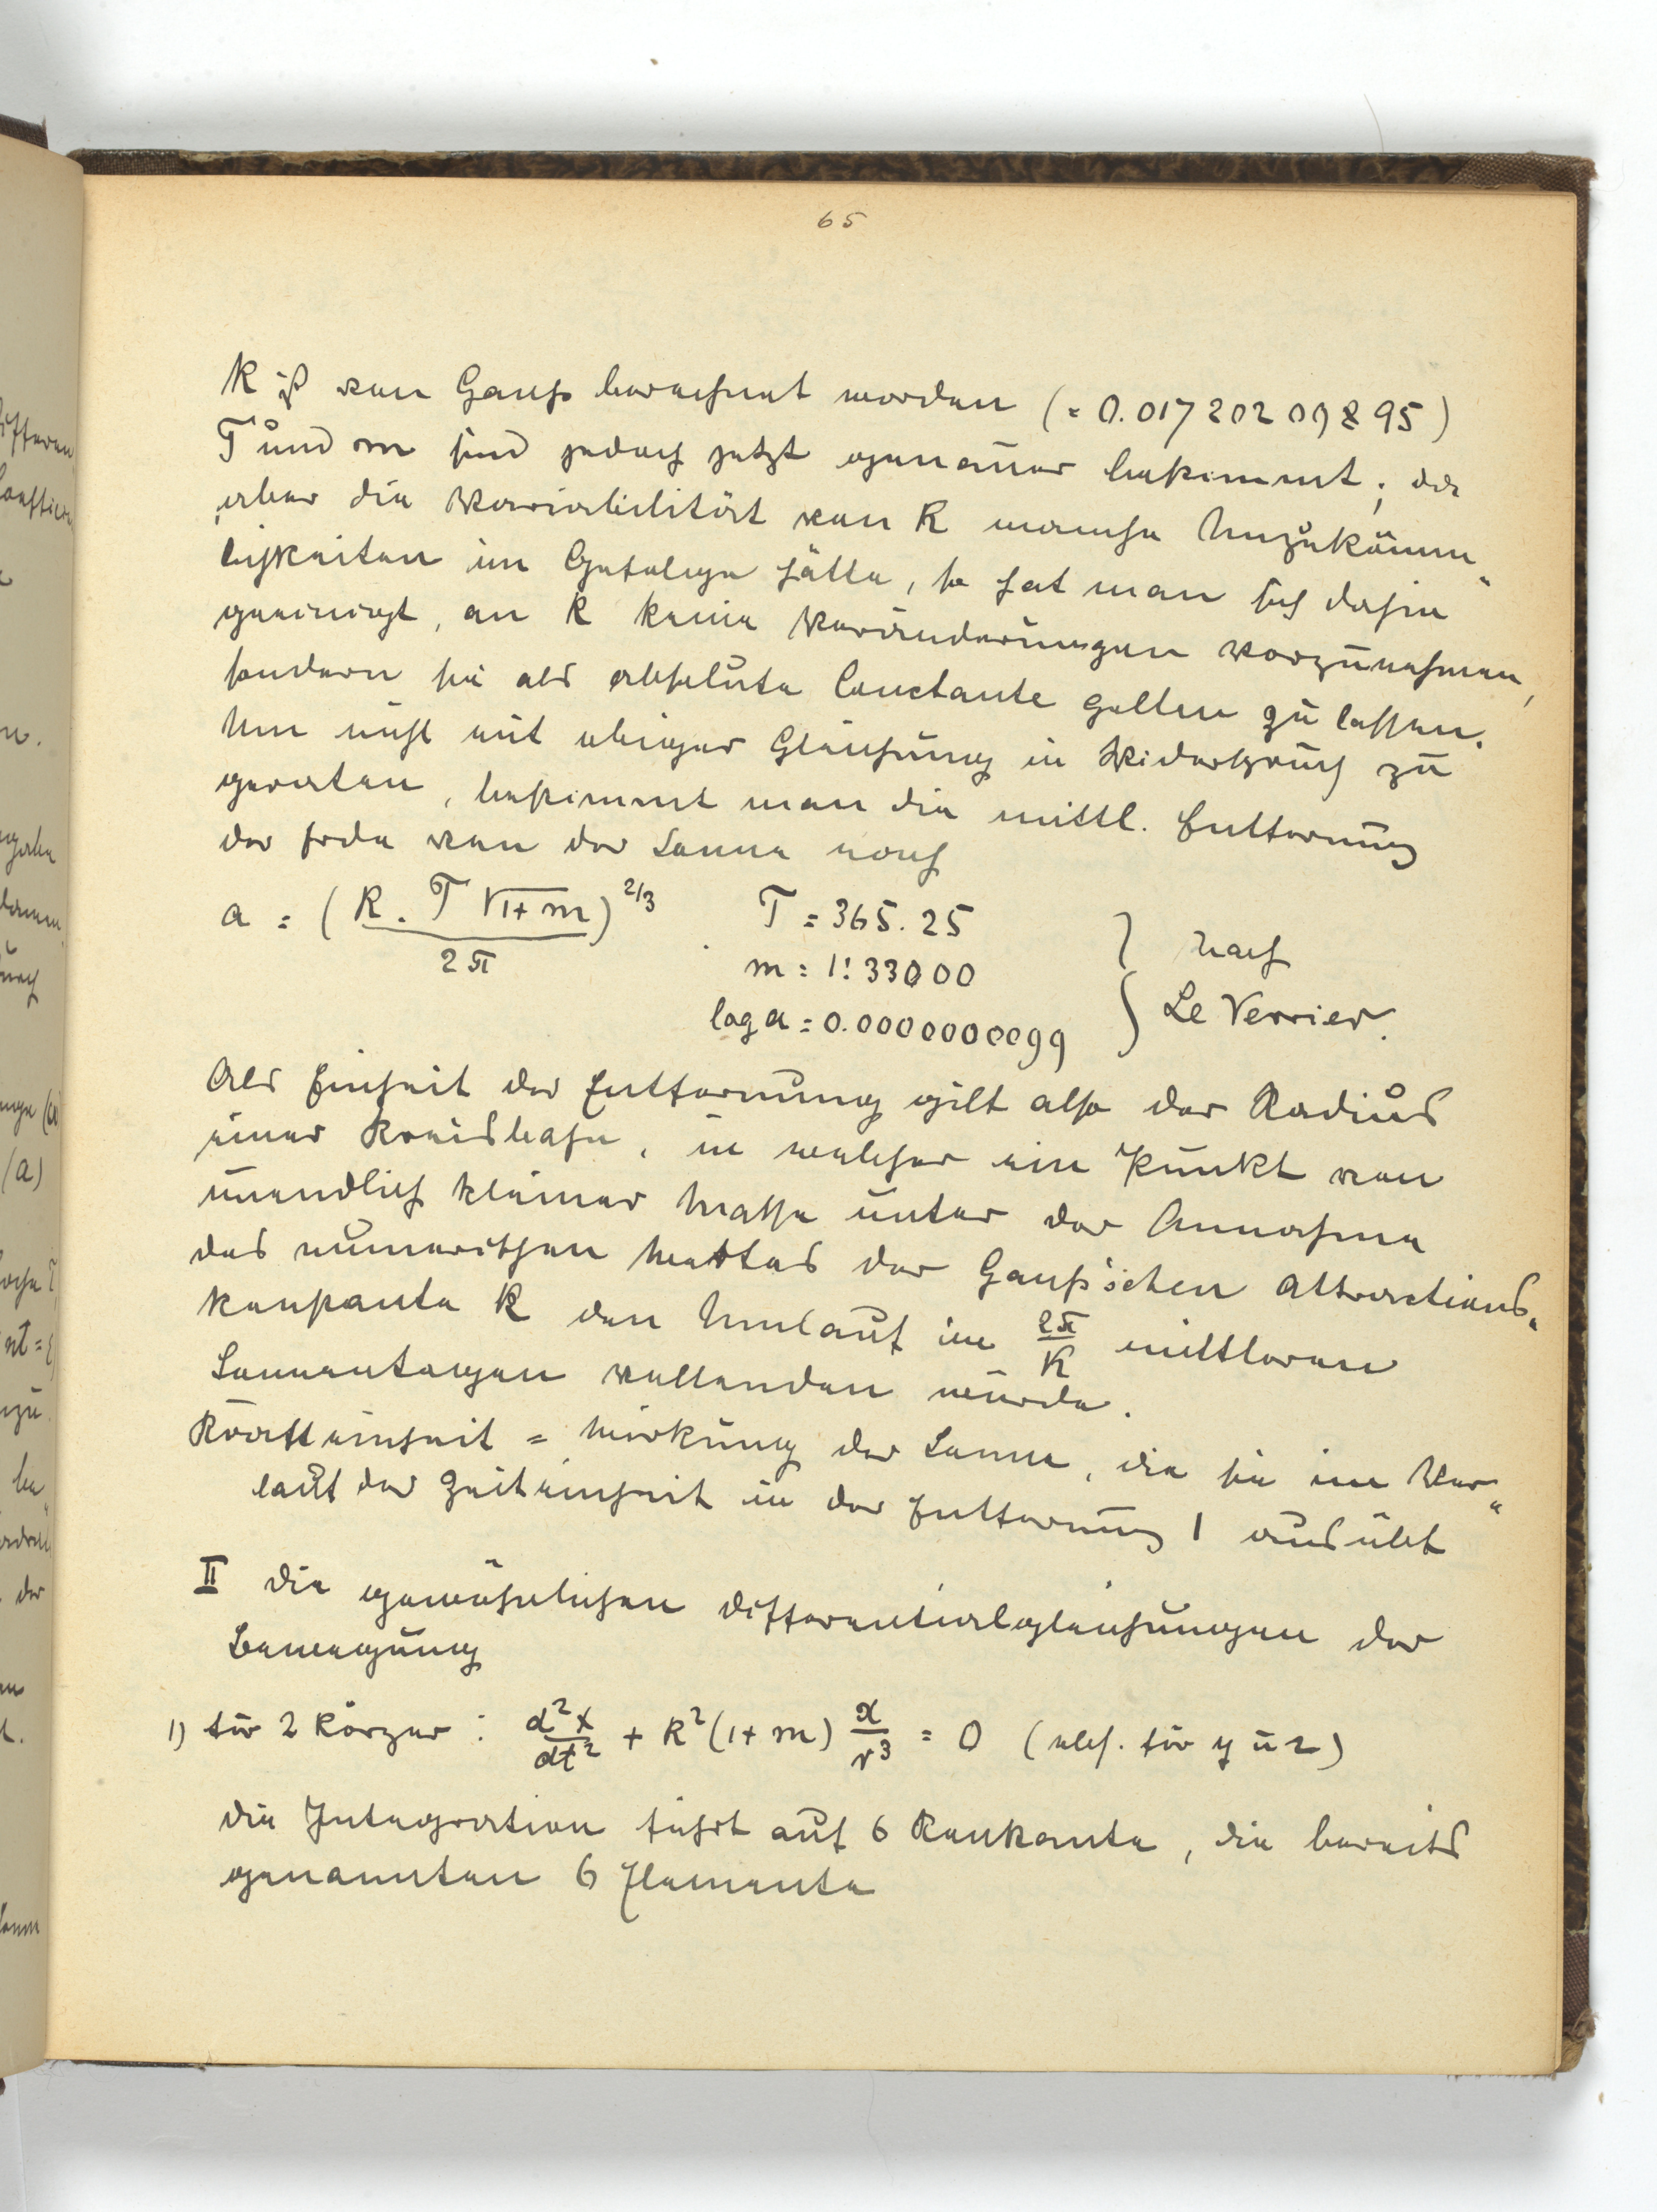 65
k ist von Gauss berechnet worden (= 0.01720209895)
T und m sind jedoch jetzt genauer bestimmt; da
aber die Variabilität von k manche Unzukömm„
lichkeiten im Gefolge hätte, so hat man sich dahin
geeinigt, an k keine Veränderungen vorzunehmen,
sondern sie als absolute Constante gelten zu lassen.
Um nicht mit obiger Gleichung in Widerspruch zu
geraten, bestimmt man die mittl. Entfernung
der Erde von der Sonne nach
a = (k . T √1+m / 2π)^2/3 T = 365.25
m = 1:33000 } nach
log a = 0.0000000099 Le Verrier.
Als Einheit der Entfernung gilt also der Radius
einer Kreisbahn, in welcher ein Punkt von
unendlich kleiner Masse unter der Annahme
des numerischen Wertes der Gauß'schen Attractions„
konstante k den Umlauf in 2π/k mittleren
Sonnentagen vollenden würde.
Krafteinheit = Wirkung der Sonne, die sie im Ver„
lauf der Zeiteinheit in der Entfernung 1 ausübt
II Die gewöhnlichen Differentialgleichungen der
Bewegung
1) für 2 Körper : d²x/dt² + k²(1+m) x/r³ = 0 ( für y u z)
Die Integration führt auf 6 Konstante, die bereits
genannten 6 Elemente